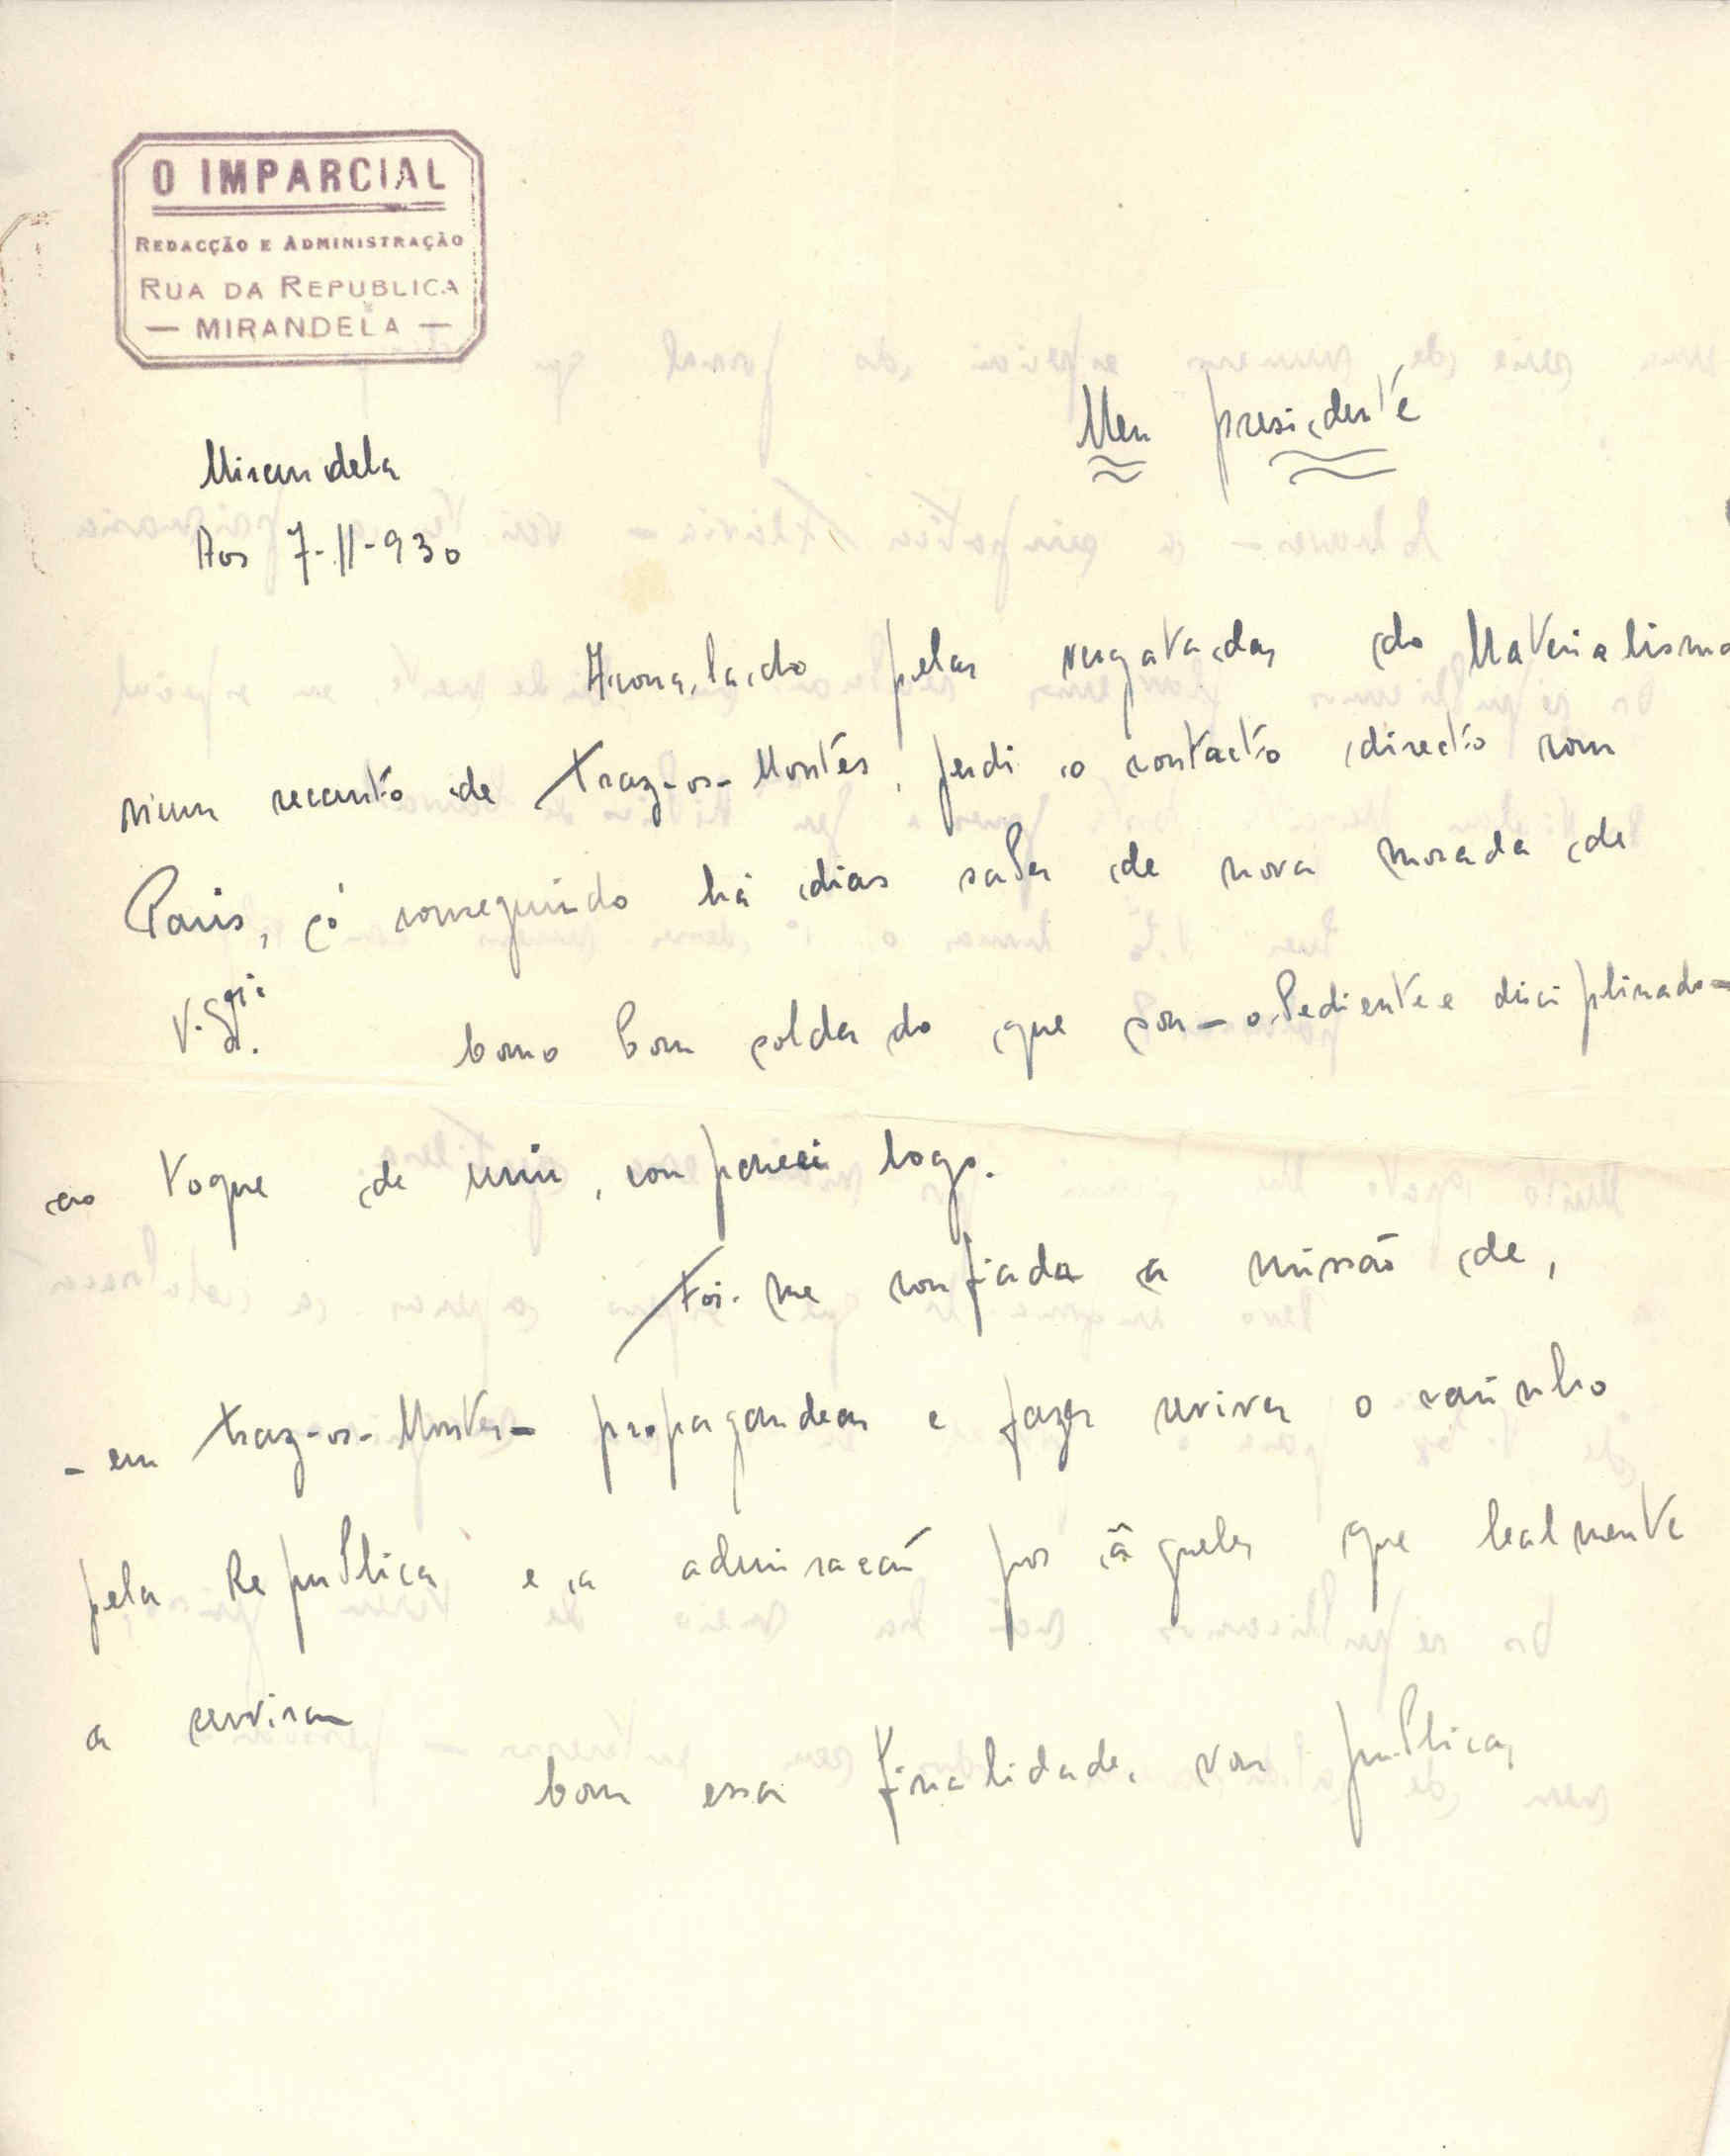 O IMPARCIAL
REDACÇÃO E ADMINISTRAÇÃO
RUA DA REPUBLICA
— MIRANDELA —
Meu presidente
Mirandela
Aos 7-11-930
pelas vergatadas do Materialismo
num recanto de Traz-os-Montes, perdi o contacto directo com
Paris, só conseguindo há dias saber de nova morada de
V. Como bom soldado que sou - obediente e disciplinado -
ao toque de unir, compareci logo.
Foi-me confiada a missão de,
- em Traz-os-Montes - propagandear e fazer reviver o carinho
pela Republica e a admiracaõ por áqueles que lealmente
a serviram
Com essa finalidade, vou publicar